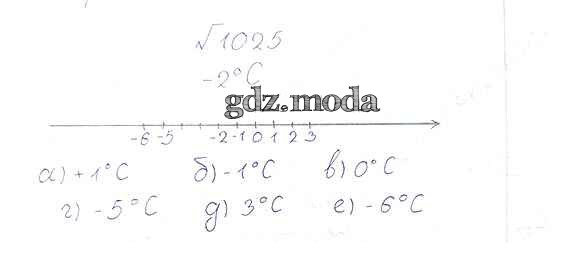 √1025
-2°C
gdz.moda
-6 -5 -2 -1 0 1 2 3
а) +1°C б) -1°C в) 0°C
г) -5°C д) 3°C е) -6°C